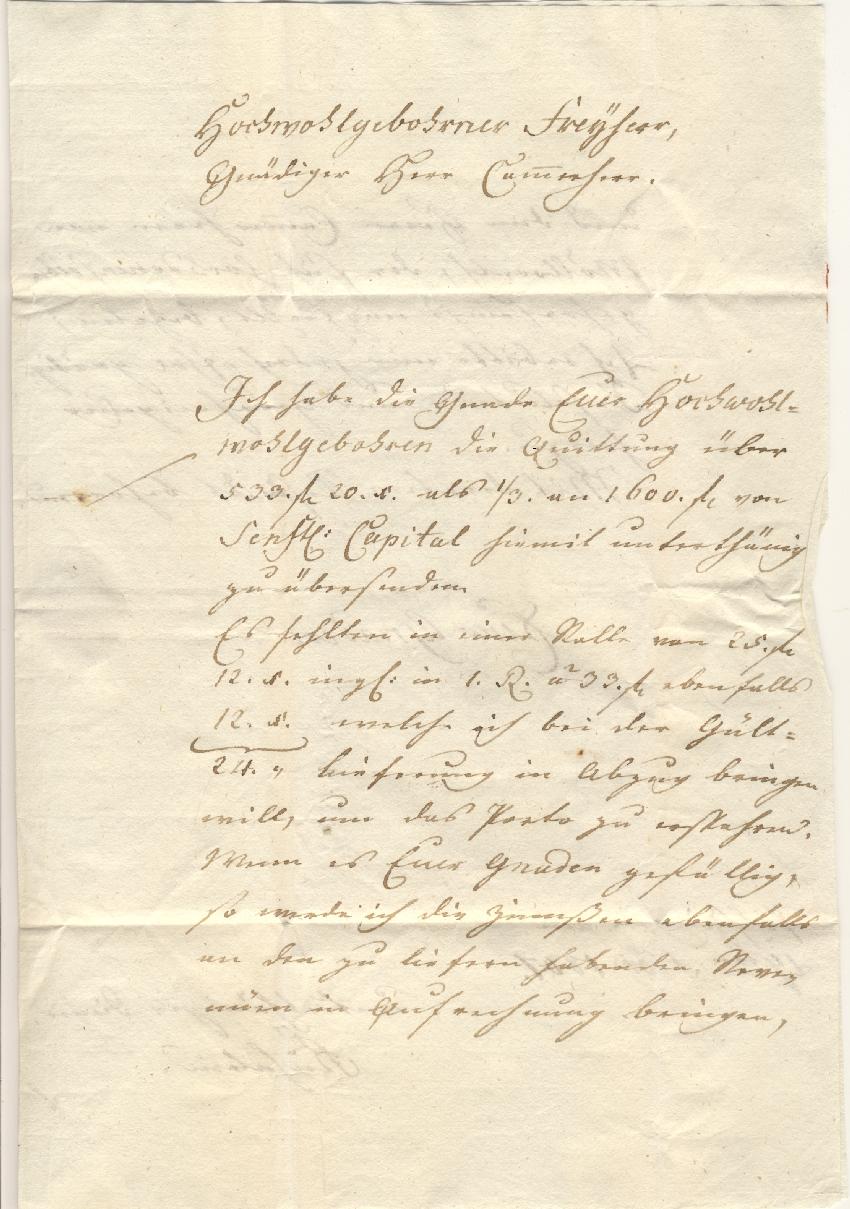 Hochwohlgebohrner Freÿherr,
Gnädiger Herr Cam̅erherr.
Ich habe die Gnade Euer Hochwohl=
wohlgebohren die Quittung über
533. fl 20. x. als 1/3. an 1600. fl. von
Capital hiemit unterthänig
zu übersenden
Es fehlten in einer Rolle von 25. fl
12. x. ingl: in 1. R. à 33. fl ebenfalls
12. x. welche ich bei der Gült=
24. " lieferung in Abzug bringen
will, um das Porto zu ersparen.
Wenn es Euer Gnaden gefällig,
so werde ich die Zinnßen ebenfalls
an den zu liefern habenden Reve,
nüen in Aufrechnung bringen,